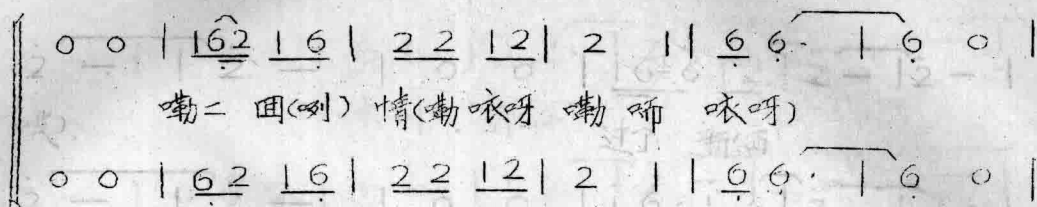 0 0 | 162 16 | 22 12 | 2 1 | 6 6· | 6 0 |
嘞二 囬(咧) 情(嘞 呀 嘞 呀)
0 0 | 62 16 | 22 12 | 2 1 | 6 6· | 6 0 |